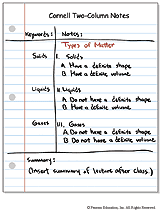 Cornell Two-Column Notes
Keywords: Notes:
Types of Matter
Solids I. Solids
A. Have a definite shape
B. Have a definite volume
Liquids II. Liquids
A. Do not have a definite shape
B. Have a definite volume
Gases III. Gases
A. Do not have a definite shape
B. Do not have a definite volume
Summary:
(Insert summary of lecture after class.)
© Pearson Education, Inc. All Rights Reserved.